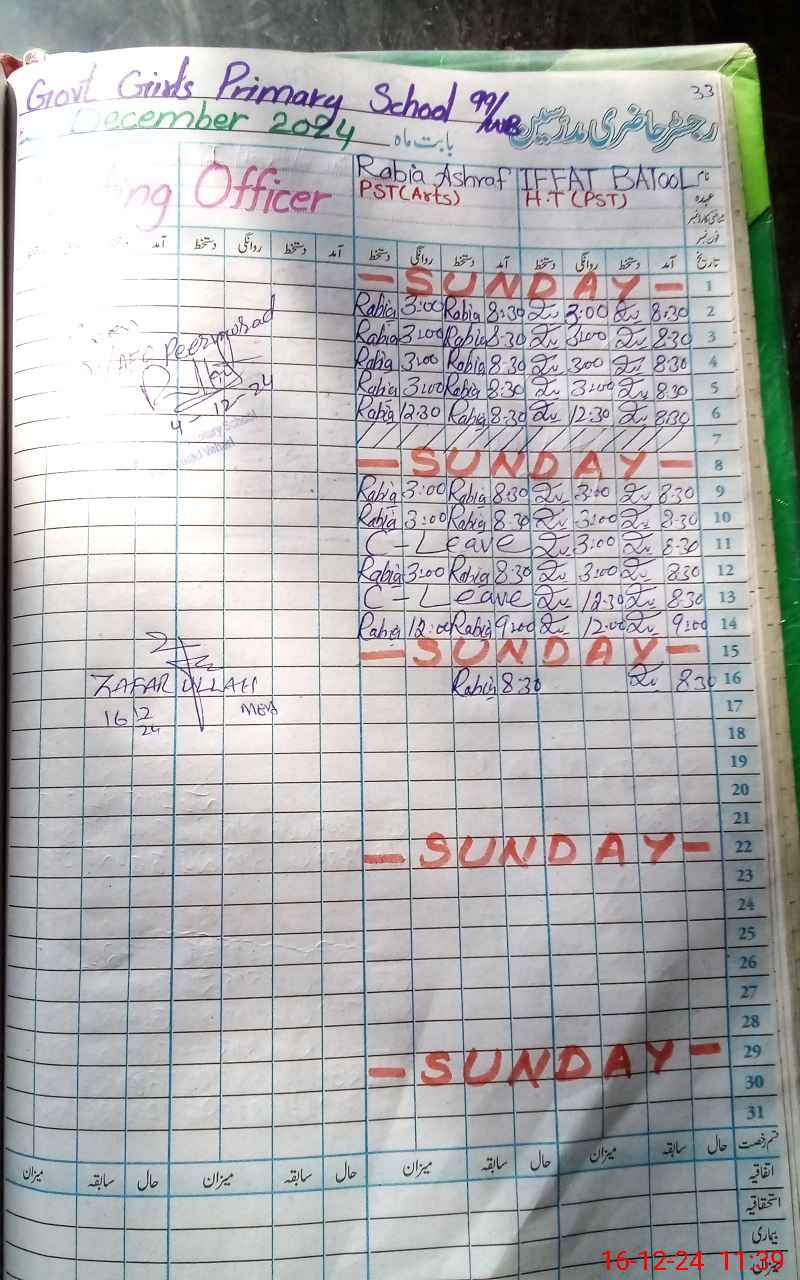 33
Govt Girls Primary School 99/WB
December 2024 بابت ماہ رجسٹر حاضری مدرسین
Officer Rabia Ashraf IFFAT BATOOL نام
PST(Arts) H.T (PST) عہدہ
آمد دستخط روانگی دستخط آمد دستخط روانگی دستخط آمد دستخط روانگی دستخط آمد تاریخ
- SUNDAY - 1
Rabia 3:00 Rabia 8:30 3:00 8:30 2
Rabia 3:00 Rabia 8:30 3:00 8:30 3
Rabia 3:00 Rabia 8:30 3:00 8:30 4
Rabia 3:00 Rabia 8:30 3:00 8:30 5
Rabia 12:30 Rabia 8:30 12:30 8:30 6
4-12-24
7
- SUNDAY - 8
Rabia 3:00 Rabia 8:30 3:00 8:30 9
Rabia 3:00 Rabia 8:30 3:00 8:30 10
C-Leave 3:00 8:30 11
Rabia 3:00 Rabia 8:30 3:00 8:30 12
C-Leave 12:30 8:30 13
Rabia 12:00 Rabia 9:00 12:00 9:00 14
- SUNDAY - 15
ZAFAR ULLAH Rabia 8:30 8:30 16
16 12 24 MEA 17
18
19
20
21
- SUNDAY - 22
23
24
25
26
27
28
- SUNDAY - 29
30
31
میزان سابقہ حال میزان سابقہ حال میزان سابقہ حال میزان سابقہ حال قسم رخصت
اتفاقیہ
استحقاقیہ
بیماری
میزان
16-12-24 11:39